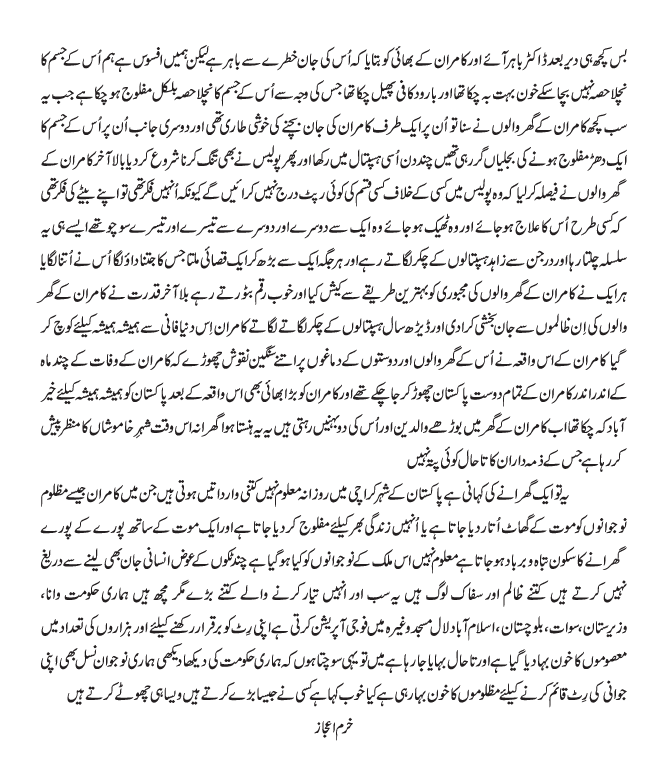 بس کچھ ہی دیر بعد ڈاکٹر باہر آئے اور کامران کے بھائی کو بتایا کہ اُس کی جان خطرے سے باہر ہے لیکن ہمیں افسوس ہے ہم اُس کے جسم کا
نچلا حصہ نہیں بچا سکے خون بہت بہ چکا تھا اور بارود کافی پھیل چکا تھا جس کی وجہ سے اُس کے جسم کا نچلا حصہ بلکل مفلوج ہو چکا ہے جب یہ
سب کچھ کامران کے گھر والوں نے سنا تو اُن پر ایک طرف کامران کی جان بچنے کی خوشی طاری تھی اور دوسری جانب اُن پر اُس کے جسم کا
ایک دھڑ مفلوج ہونے کی بجلیاں گر رہی تھیں چند دن اُسی ہسپتال میں رکھا اور پھر پولیس نے بھی تنگ کرنا شروع کر دیا بالا آخر کامران کے
گھر والوں نے فیصلہ کر لیا کہ وہ پولیس میں کسی کے خلاف کسی قسم کی کوئی رپٹ درج نہیں کرائیں گے کیونکہ اُنہیں فکر تھی تو اپنے بیٹے کی فکر تھی
کہ کسی طرح اُس کا علاج ہو جائے اور وہ ٹھیک ہو جائے وہ ایک سے دوسرے اور دوسرے سے تیسرے اور تیسرے سو چوتھے ایسے ہی یہ
سلسلہ چلتا رہا اور درجن سے زاہد ہسپتالوں کے چکر لگاتے رہے اور ہر جگہ ایک سے بڑھ کر ایک قصائی ملتا جس کا جتنا داؤ لگا اُس نے اُتنا لگایا
ہر ایک نے کامران کے گھر والوں کی مجبوری کو بہترین طریقے سے کیش کیا اور خوب رقم بٹورتے رہے بلا آخر قدرت نے کامران کے گھر
والوں کی اِن ظالموں سے جان بخشی کرا دی اور ڈیڑھ سال ہسپتالوں کے چکر لگاتے لگاتے کامران اِس دنیا فانی سے ہمیشہ ہمیشہ کیلئے کوچ کر
گیا کامران کے اس واقعہ نے اُس کے گھر والوں اور دوستوں کے دماغوں پر اتنے سنگین نقوش چھوڑے کہ کامران کے وفات کے چند ماہ
کے اندر اندر کامران کے تمام دوست پاکستان چھوڑ کر جا چکے تھے اور کامران کو بڑا بھائی بھی اس واقعہ کے بعد پاکستان کو ہمیشہ ہمیشہ کیلئے خیر
آباد کہ چکا تھا اب کامران کے گھر میں بوڑھے والدین اور اُس کی دو بہنیں رہتی ہیں یہ یہ ہنستا ہوا گھرانہ اس وقت شہرِ خاموشاں کا منظر پیش
کر رہا ہے جس کے ذمہ داران کا تا حال کوئی پتہ نہیں
یہ تو ایک گھرانے کی کہانی ہے پاکستان کے شہر کراچی میں روزانہ معلوم نہیں کتنی وارداتیں ہوتی ہیں جن میں کامران جیسے مظلوم
نوجوانوں کو موت کے گھاٹ اُتار دیا جاتا ہے یا اُنہیں زندگی بھر کیلئے مفلوج کر دیا جاتا ہے اور ایک موت کے ساتھ پورے کے پورے
گھرانے کا سکون تباہ و برباد ہو جاتا ہے معلوم نہیں اس ملک کے نوجوانوں کو کیا ہو گیا ہے چند ٹکوں کے عوض انسانی جان بھی لینے سے دریغ
نہیں کرتے ہیں کتنے ظالم اور سفاک لوگ ہیں یہ سب اور انہیں تیار کرنے والے کتنے بڑے مگر مچھ ہیں ہماری حکومت وانا،
وزیرستان، سوات، بلوچستان، اسلام آباد لال مسجد وغیرہ میں فوجی آپریشن کرتی ہے اپنی رِٹ کو برقرار رکھنے کیلئے اور ہزاروں کی تعداد میں
معصوموں کا خون بہا دیا گیا ہے اور تا حال بہایا جا رہا ہے میں تو یہی سوچتا ہوں کہ ہماری حکومت کی دیکھا دیکھی ہماری نوجوان نسل بھی اپنی
جوانی کی رِٹ قائم کرنے کیلئے مظلوموں کا خون بہا رہی ہے کیا خوب کہا ہے کسی نے جیسا بڑے کرتے ہیں ویسا ہی چھوٹے کرتے ہیں
خرم اعجاز